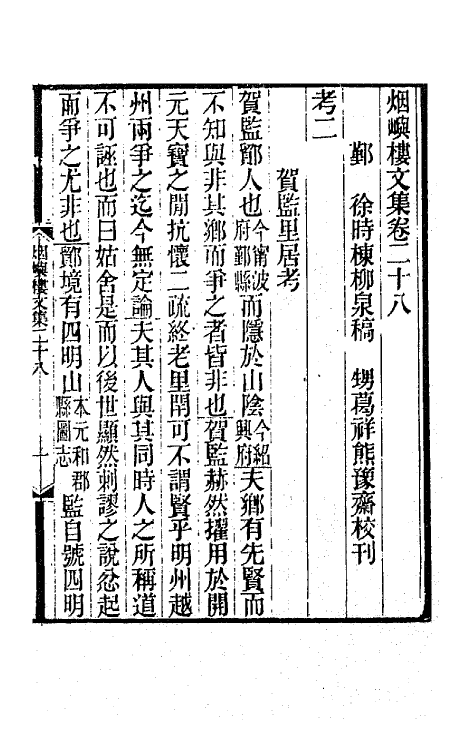 烟嶼樓文集卷二十八
鄞　徐時棟柳泉稿　甥葛祥熊豫齋校刊
考二
賀監里居考
賀監鄮人也今甯波府鄞縣而隱於山陰今紹興府夫鄉有先賢而
不知與非其鄉而爭之者皆非也賀監赫然擢用於開
元天寶之閒抗懷二疏經老里閈可不謂賢乎明州越
州兩爭之迄今無定論夫其人與其同時人之所稱道
不可誣也而曰姑舍是而以後世顯然剌謬之說忿起
而爭之尤非也鄮境有四明山本元和郡縣圖志監自號四明
烟嶼樓文集二十八　一